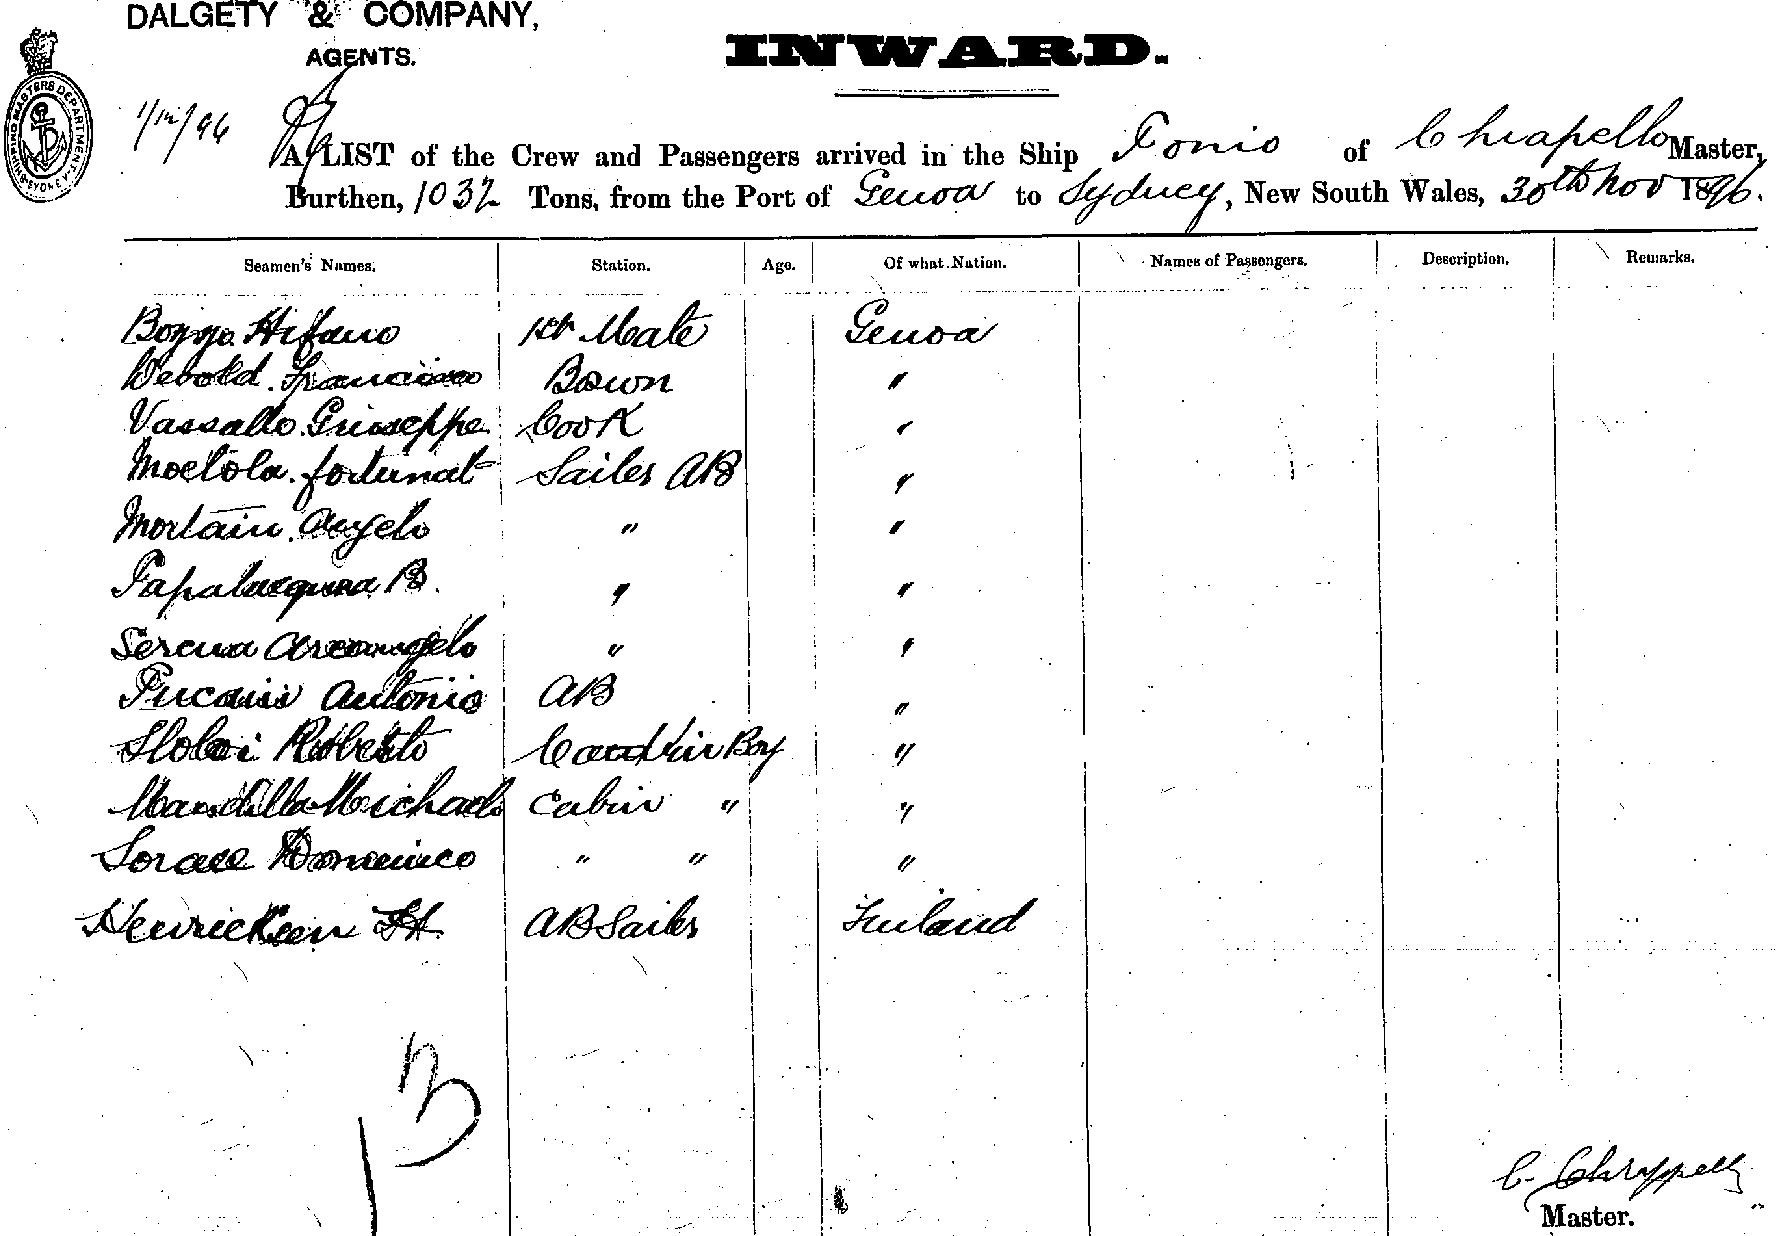 DALGETY & COMPANY,
AGENTS.
INWARD.
SHIPPING MASTERS DEPARTMENT SYDNEY
1/12/96
A LIST of the Crew and Passengers arrived in the Ship Fonio of C Chiapello Master,
Burthen, 1032 Tons, from the Port of Genoa to Sydney, New South Wales, 30th Nov 1896.
Seamen's Names. Station. Age. Of what Nation. Names of Passengers. Description. Remarks.
Bozzo 1st Mate Genoa
Francisco Bosun "
Vassallo Giuseppe Cook "
Sailer AB "
Mortain Angelo " "
B. " "
Serena Arcangelo " "
Antonio AB "
Roberto Boy "
Cabin " "
Domenico " " "
AB Sailer Finland
13
Master.